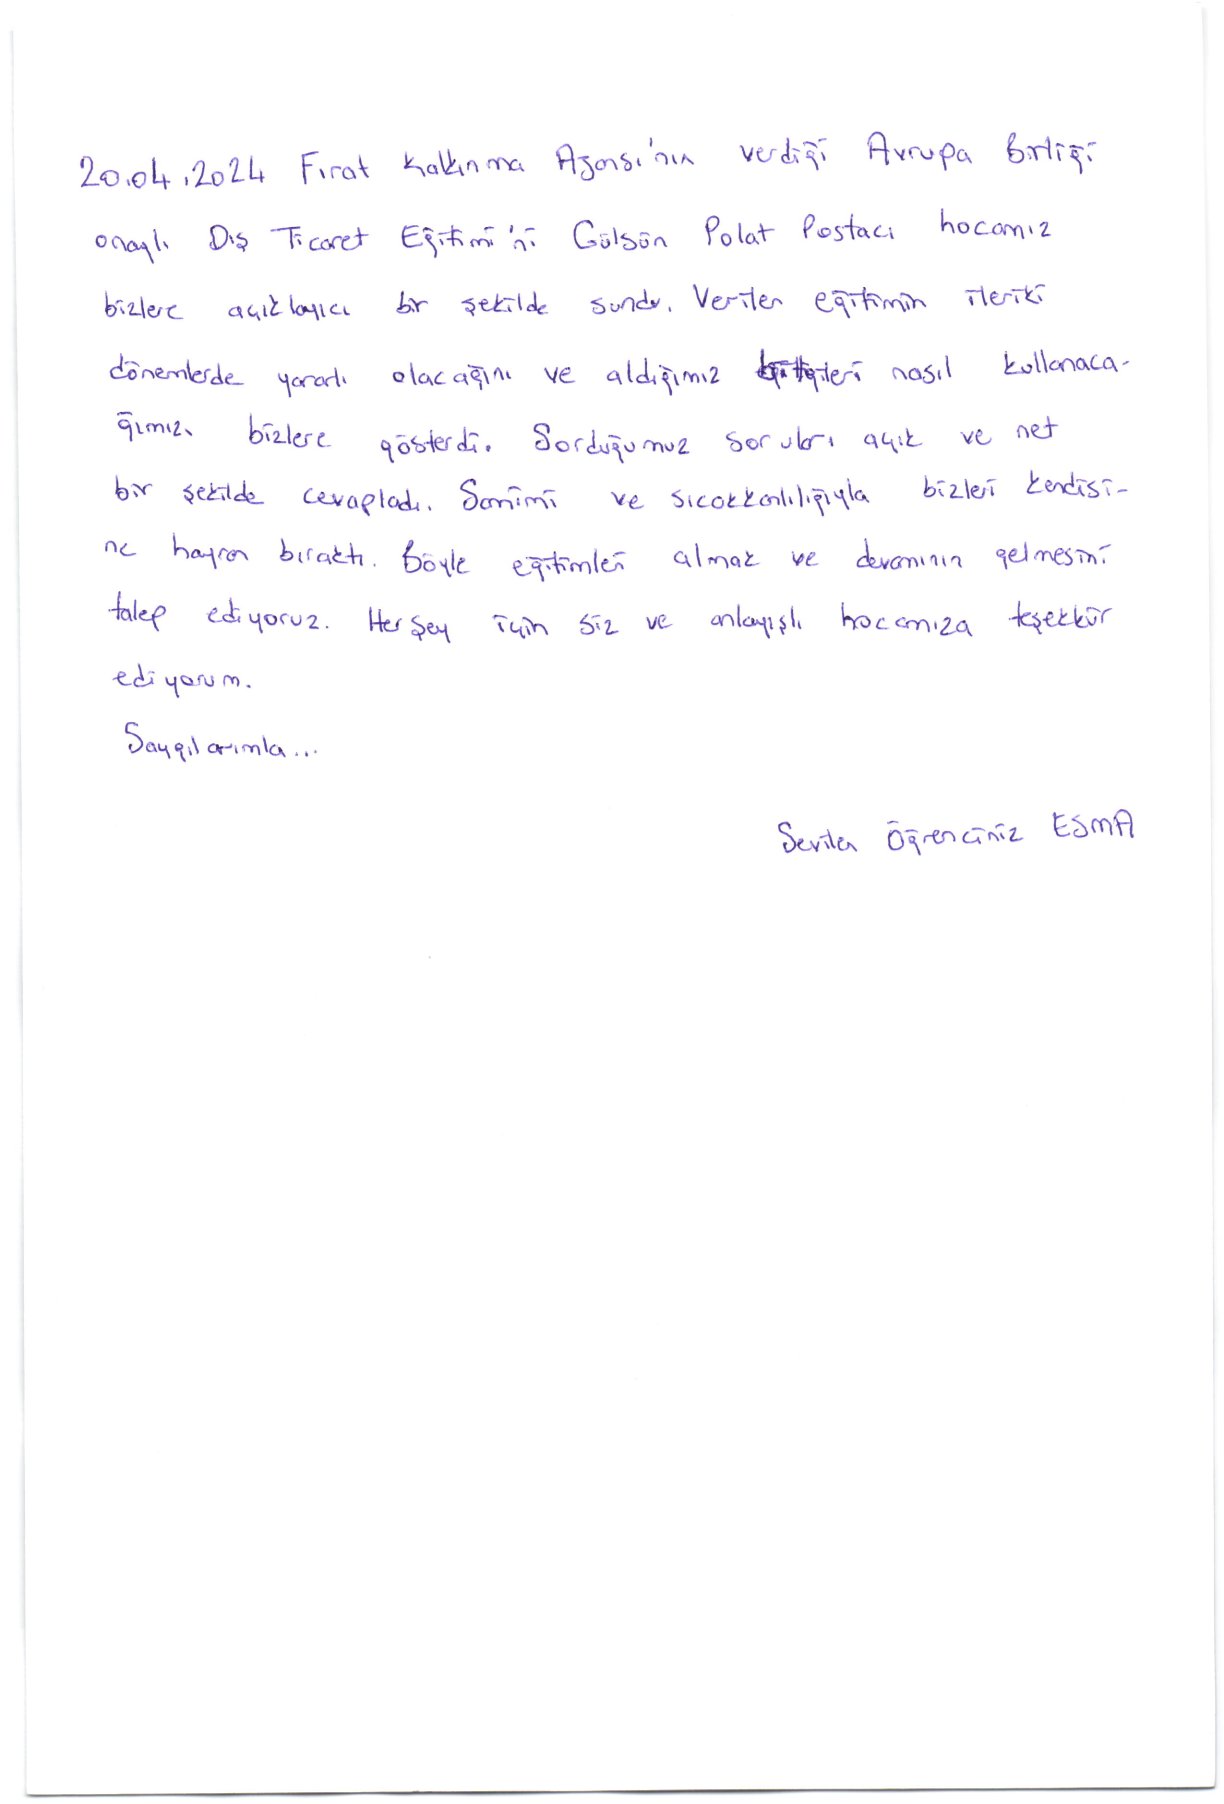 20.04.2024 Fırat Kalkınma Ajansı'nın verdiği Avrupa Birliği
onaylı Dış Ticaret Eğitimi'ni Gülsün Polat Postacı hocamız
bizlere açıklayıcı bir şekilde sundu. Verilen eğitimin ileriki
dönemlerde yararlı olacağını ve aldığımız bilgileri nasıl kullanaca-
ğımızı bizlere gösterdi. Sorduğumuz soruları açık ve net
bir şekilde cevapladı. Samimi ve sıcakkanlılığıyla bizleri kendisi-
ne hayran bıraktı. Böyle eğitimleri almak ve devamının gelmesini
talep ediyoruz. Her şey için siz ve anlayışlı hocamıza teşekkür
ediyorum.
Saygılarımla...
Sevilen Öğrenciniz ESMA